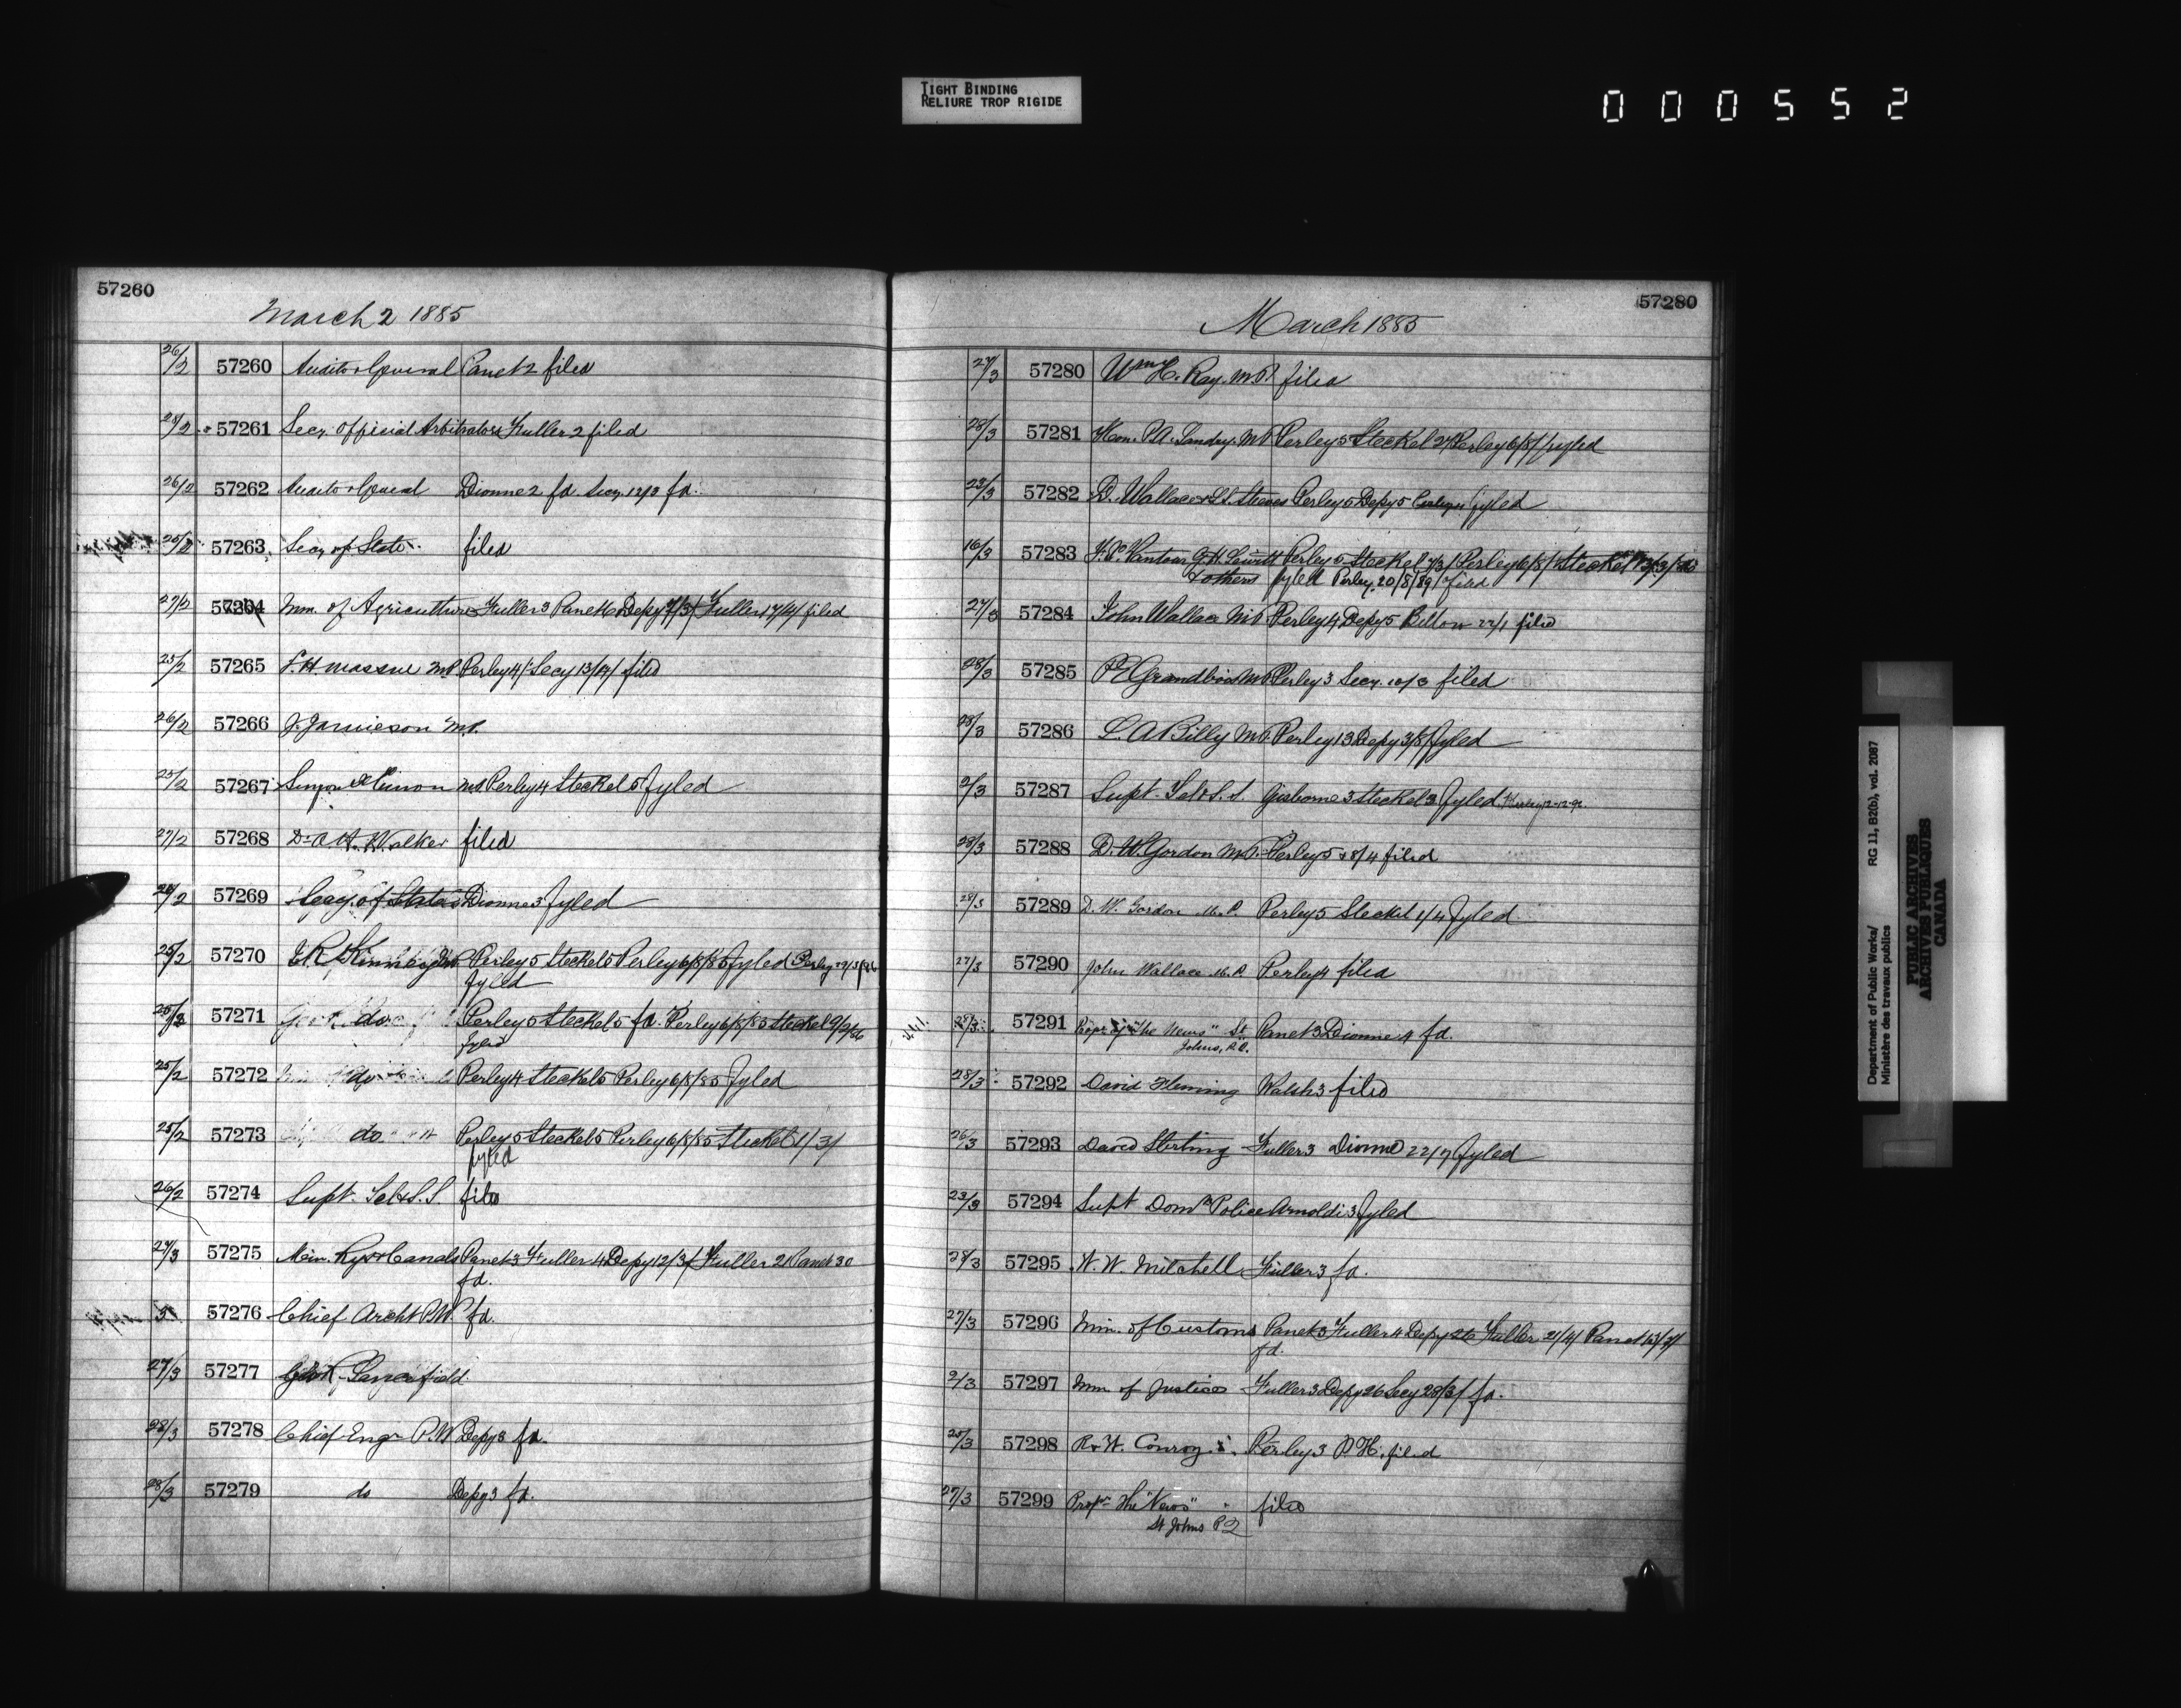 TIGHT BINDING
RELIURE TROP RIGIDE
000552
57260
March 2 1885
26/2 57260 Auditor General Panet 2 filed
28/2 57261 Secy. Official Arbitrators Fuller 2 filed
26/2 57262 Auditor General Dionne 2 fd Secy 12/3 fd.
57263 Secy of State filed
27/2 57264 Min. of Agriculture Fuller 3 Panet 6 Depy 7/3/ Fuller 17/4/ filed
25/2 57265 F. H. Massue M.P. Perley 4/ Secy 13/4/ filed
26/2 57266 J. Jamieson M.P.
25/2 57267 Simon M.P. Perley 4 Steckel 5 fyled
27/2 57268 Dr. A. H. Walker filed
26/2 57269 Secy. of State Dionne 3 fyled
25/2 57270 Perley 5 Steckel 5 Perley 6/8/85 fyled Perley
fyled
25/2 57271 do Perley 5 Steckel 5 fd. Perley 6/8/85 Steckel 9/9/86
fyled
25/2 57272 do Perley 4 Steckel 5 Perley 6/8/85 fyled
25/2 57273 do. Perley 5 Steckel 5 Perley 6/8/85 Steckel 1/3/
fyled
26/2 57274 Supt. Tel & S.S. filed
27/3 57275 Min. Rys & Canals Panet 3 Fuller 4 Depy 12/3/ Fuller 21 Panet 30
fd.
57276 Chief Archt P.W. fd.
27/3 57277
28/3 57278 Chief Engr P.W Depy 3 fd.
28/3 57279 do Depy 3 fd.
57280
March 1885
27/3 57280 Wm H. Ray. M.P. filed
28/3 57281 Hon. P.A. Landry. M.P. Perley 5 Steckel Perley 6/8/ fyled
23/3 57282 D. Wallace Steeves Perley 5 Depy 5 fyled
16/3 57283 Perley 5 Steckel Perley 6/8/ Steckel
& others fyled Perley 20/8/89/ filed
27/3 57284 John Wallace M.P. Perley 4 Depy 5 22/1 filed
28/3 57285 Grandbois M.P. Perley 3 Secy. 10/3 filed
28/3 57286 L. A Billy M.P. Perley 13 Depy 3/8/ fyled
2/3 57287 Supt. Tel & S.S. Gisborne 3 Steckel 3 fyled
28/3 57288 D. W. Gordon M.P. Perley 5 filed
28/3 57289 D. W. Gordon M.P. Perley 5 Steckel 1/4 fyled
27/3 57290 John Wallace M.P. Perley 4 filed
57291 "The News" St Panet 3 Dionne 4 fd.
Johns, P.Q.
28/3 57292 David Fleming Walsh 3 filed
26/3 57293 David Sterling Fuller 3 Dionne 22/7 fyled
23/3 57294 Supt Domn Police Arnoldi 3 fyled
28/3 57295 W. W. Mitchell Fuller 3 fd.
27/3 57296 Min. of Customs Panet 3 Fuller 4 Depy 26 Fuller 21/4/ Panet
fd.
2/3 57297 Min of Justice Fuller 3 Depy 26 Secy 28/3/ fd.
57298 R & W. Conroy Perley 3 P.H. filed
27/3 57299 Propr. The "News" filed
St Johns P Q
Department of Public Works/
Ministère des travaux publics
RG 11, B2(b), vol. 2087
PUBLIC ARCHIVES
ARCHIVES PUBLIQUES
CANADA